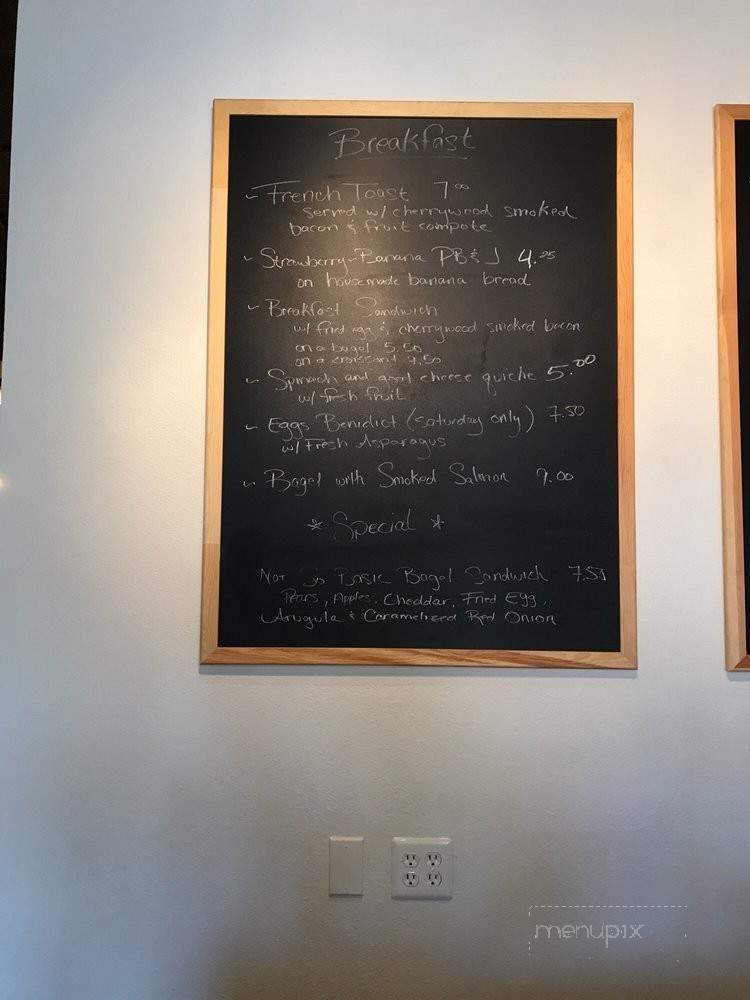 Breakfast
~ French Toast 7.00
served w/ cherrywood smoked
bacon & fruit compote
~ Strawberry-Banana PB & J 4.25
on housemade banana bread
~ Breakfast Sandwich
w/ fried egg & cherrywood smoked bacon
on a bagel 5.50
on a croissant 7.50
~ Spinach and goat cheese quiche 5.00
w/ fresh fruit
~ Eggs Benidict (saturday only) 7.50
w/ Fresh Asparagus
~ Bagel with Smoked Salmon 9.00
* Special *
Not So Basic Bagel Sandwich 7.50
Pears, Apples, Cheddar, Fried Egg,
Arugula & Caramelized Red Onion
menupix